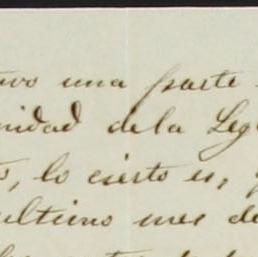 tuvo una parte
nidad de la Leg
to, lo cierto es, q
ultimo mes de